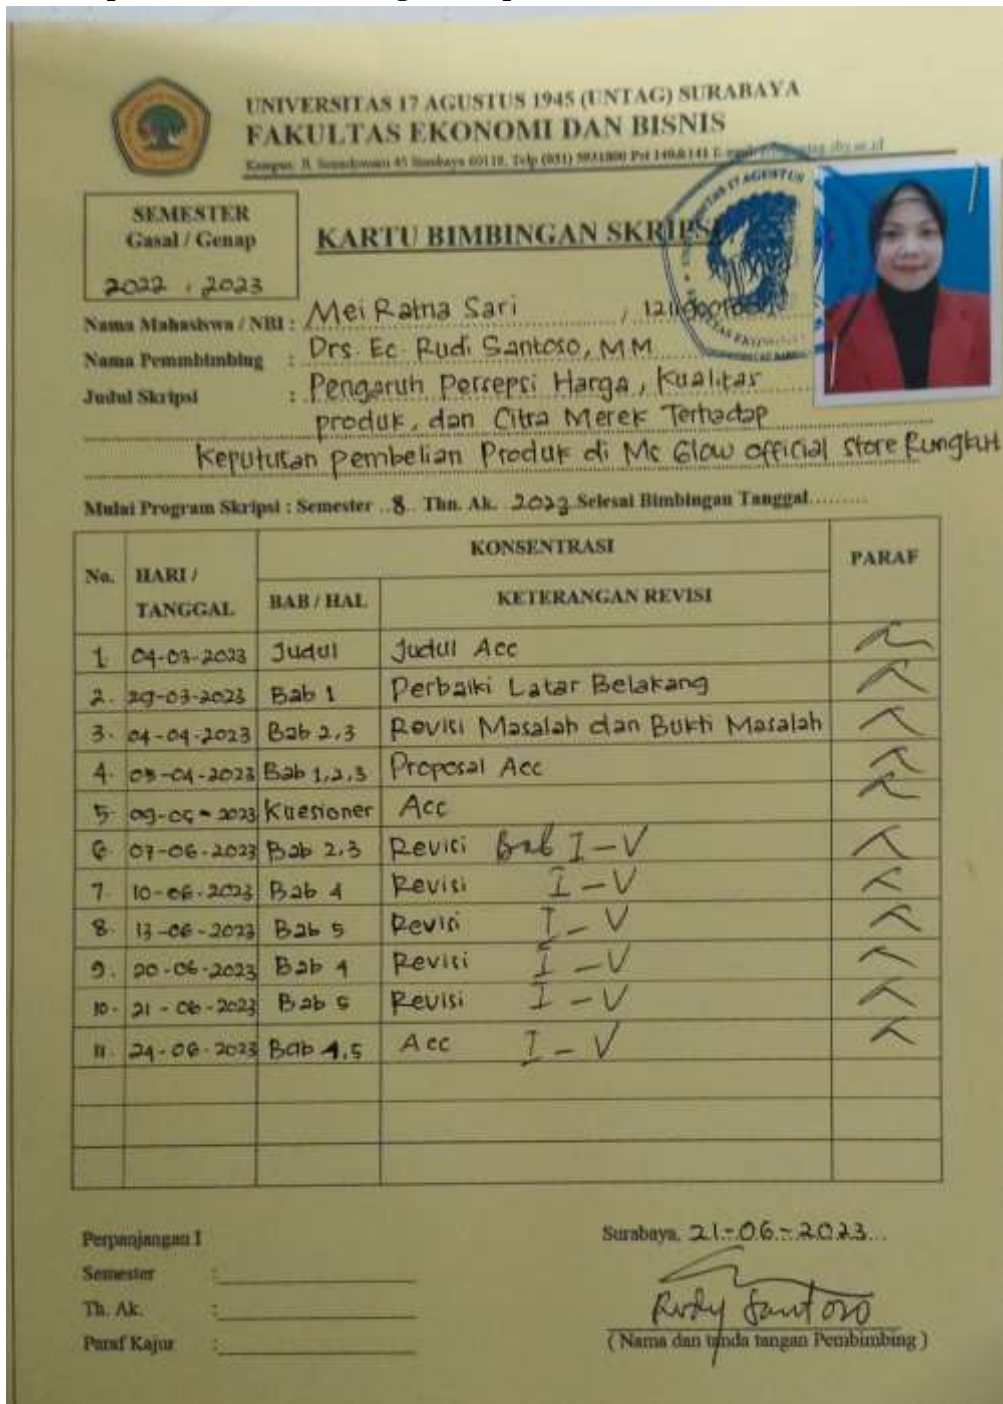 UNIVERSITAS 17 AGUSTUS 1945 (UNTAG) SURABAYA
FAKULTAS EKONOMI DAN BISNIS
Kampus. Jl. Semolowaru 45 Surabaya 60118, Telp (031) 5931800 Pst 140&141
SEMESTER
Gasal / Genap
2022 , 2023
KARTU BIMBINGAN SKRIPSI
Nama Mahasiswa / NBI : Mei Ratna Sari ,
Nama Pemmbimbing : Drs. Ec. Rudi Santoso, MM
Judul Skripsi : Pengaruh Persepsi Harga, Kualitas
produk, dan Citra Merek Terhadap
Keputusan pembelian Produk di Ms Glow official store Rungkut
Mulai Program Skripsi : Semester ..8.. Thn. Ak. 2023 Selesai Bimbingan Tanggal.........
No. HARI / TANGGAL KONSENTRASI PARAF
BAB / HAL KETERANGAN REVISI
1. 04-03-2023 Judul Judul Acc
2. 29-03-2023 Bab 1 Perbaiki Latar Belakang
3. 04-04-2023 Bab 2,3 Revisi Masalah dan Bukti Masalah
4. 05-04-2023 Bab 1,2,3 Proposal Acc
5. 09-05-2023 Kuesioner Acc
6. 07-06-2023 Bab 2,3 Revisi Bab I - V
7. 10-06-2023 Bab 4 Revisi I - V
8. 13-06-2023 Bab 5 Revisi I - V
9. 20-06-2023 Bab 4 Revisi I - V
10. 21-06-2023 Bab 5 Revisi I - V
11. 24-06-2023 Bab 4,5 Acc I - V
Perpanjangan I
Semester :
Th. Ak. :
Paraf Kajur :
Surabaya, 21-06-2023...
Rudy Santoso
( Nama dan tanda tangan Pembimbing )